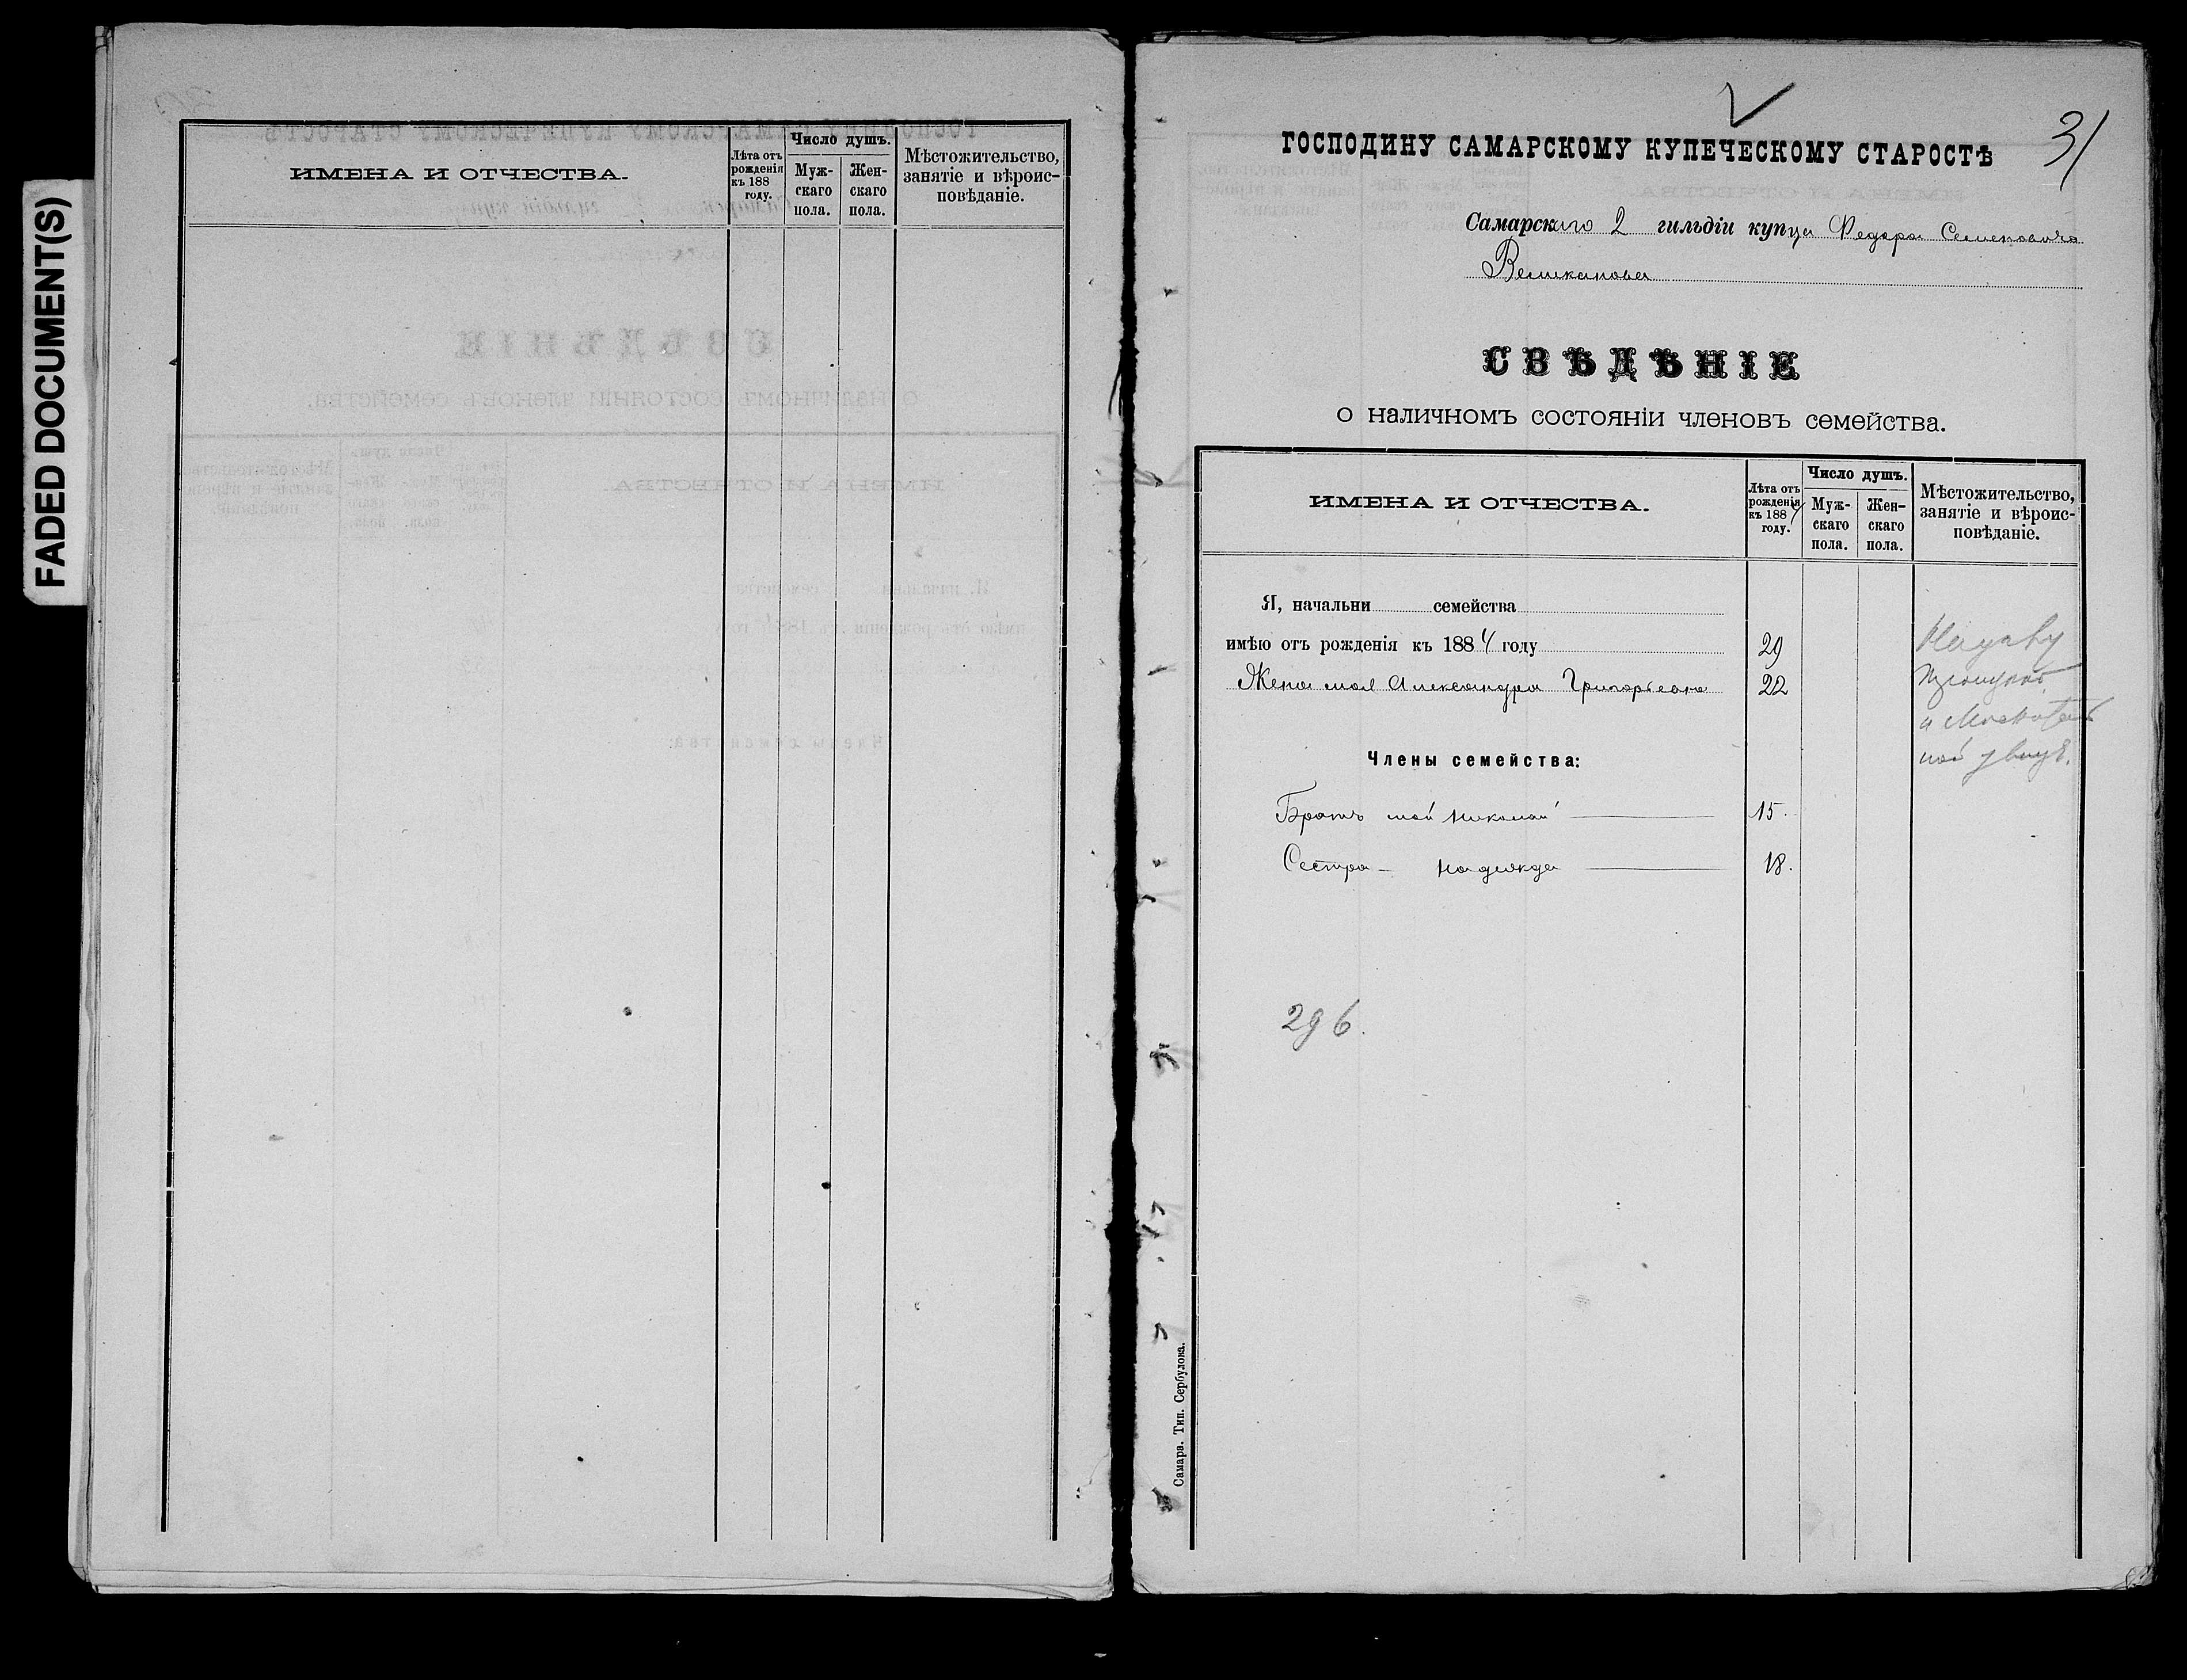 FADED DOCUMENT(S)
ИМЕНА И ОТЧЕСТВА.
Лѣта отъ рожденія къ 188 году.
Число душъ.
Муж-скаго пола.
Жен-скаго пола.
Мѣстожительство, занятіе и вѣроис-повѣданіе.
31
ГОСПОДИНУ САМАРСКОМУ КУПЕЧЕСКОМУ СТАРОСТѢ
Самарскаго 2 гильдіи купца Федора Семеновича
Великанова
СВѢДѢНІЕ
о наличномъ состояніи членовъ семейства.
ИМЕНА И ОТЧЕСТВА.
Лѣта отъ рожденія къ 1884 году.
Число душъ.
Муж-скаго пола.
Жен-скаго пола.
Мѣстожительство, занятіе и вѣроис-повѣданіе.
Я, начальни семейства
имѣю отъ рожденія къ 1884 году 29
Жена моя Александра Григорьевна 22
Члены семейства:
Братъ мой Николай 15.
Сестра - Надежда 18.
296.
Самара. Тип. Сербулова.